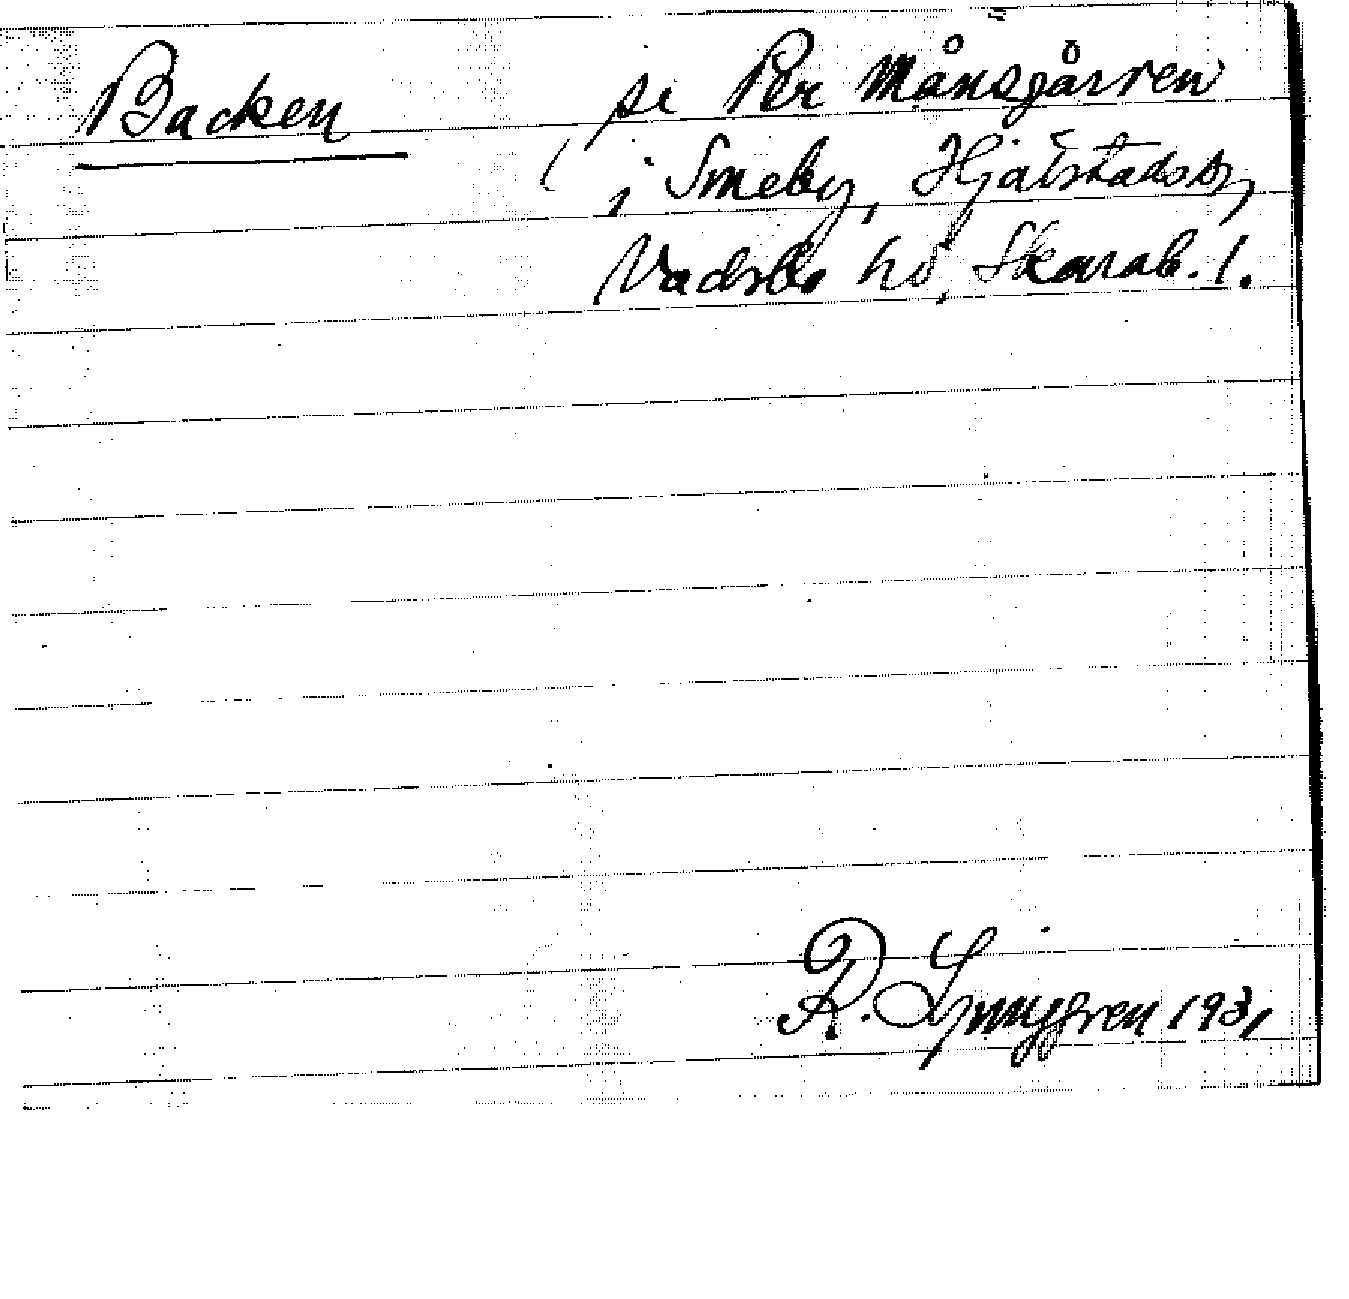 Backen se Per Månsgården
i Smeby, Hjälstads sn,
Vadsbo hd, Skarab. l.
R. Ljunggren 1931